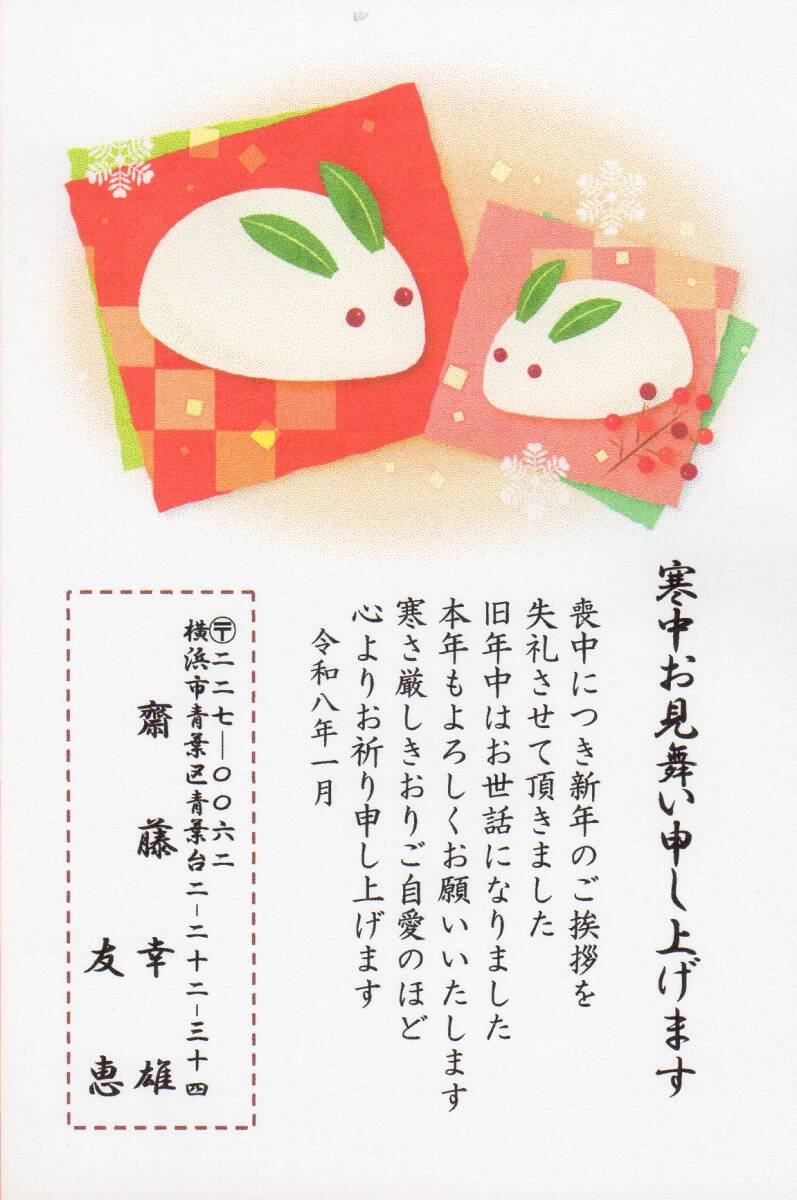 寒中お見舞い申し上げます
喪中につき新年のご挨拶を
失礼させて頂きました
旧年中はお世話になりました
本年もよろしくお願いいたします
寒さ厳しきおりご自愛のほど
心よりお祈り申し上げます
令和八年一月
〒二二七―〇〇六二
横浜市青葉区青葉台二−二十二−三十四
齋藤幸雄
友恵